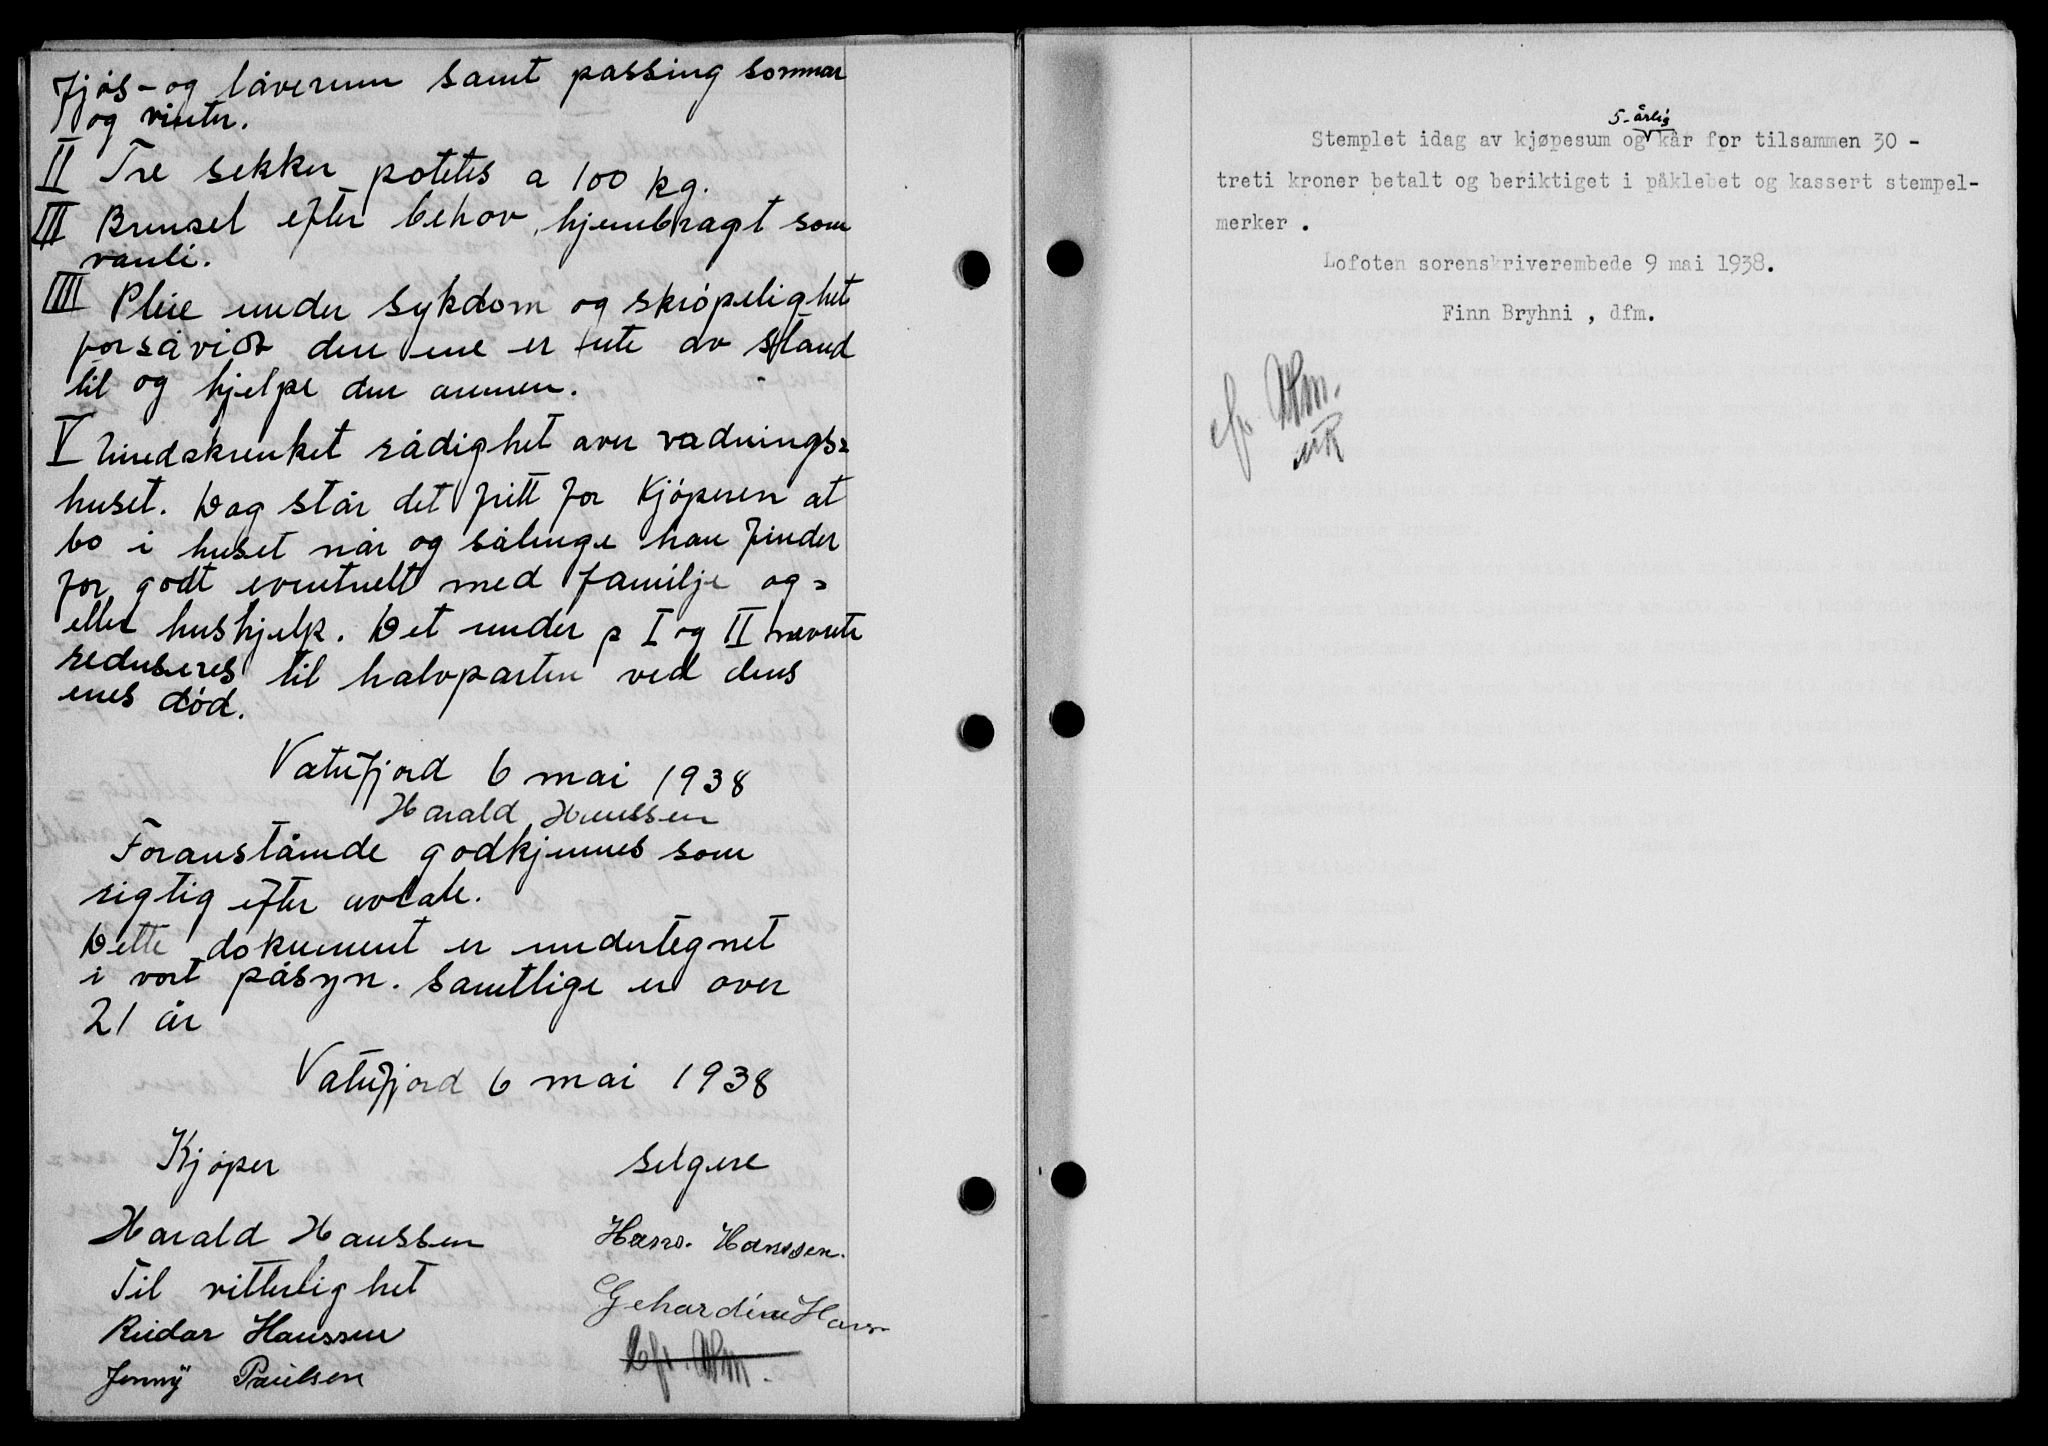 Fjøs- og låverum samt passing sommar
og vinter.
II Tre sekker potetes a 100 kg.
III Brensel efter behov, hjembragt som
vanli.
IIII Pleie under sykdom og skrøpelighet
forsåvidt den ene er ute av stand
til og hjelpe den annen.
V Uindskrenket rådighet over vadnings=
huset. Dog står det fritt for Kjøperen at
bo i huset når og sålenge han finder
for godt eventuelt med familje og=
eller hushjelp. Det under p I og II nævnte
reduseres til halvparten ved dens
enes død.
Vatnfjord 6 mai 1938
Harald Hanssen
Foranståënde godkjennes som
rigtig efter avtale.
Dette dokument er undertegnet
i vort påsyn. Samtlige er over
21 år
Vatnfjord 6 mai 1938
Kjøper selgere
Harald Hanssen Hans. Hanssen.
Til vitterlighet Gehardine Hans
Reidar Hanssen
Jenny Paulsen
5-årlig
Stemplet idag av kjøpesum og kår for tilsammen 30 -
treti kroner betalt og beriktiget i påklebet og kassert stempel-
merker .
Lofoten sorenskriverembede 9 mai 1938.
Finn Bryhni , dfm.